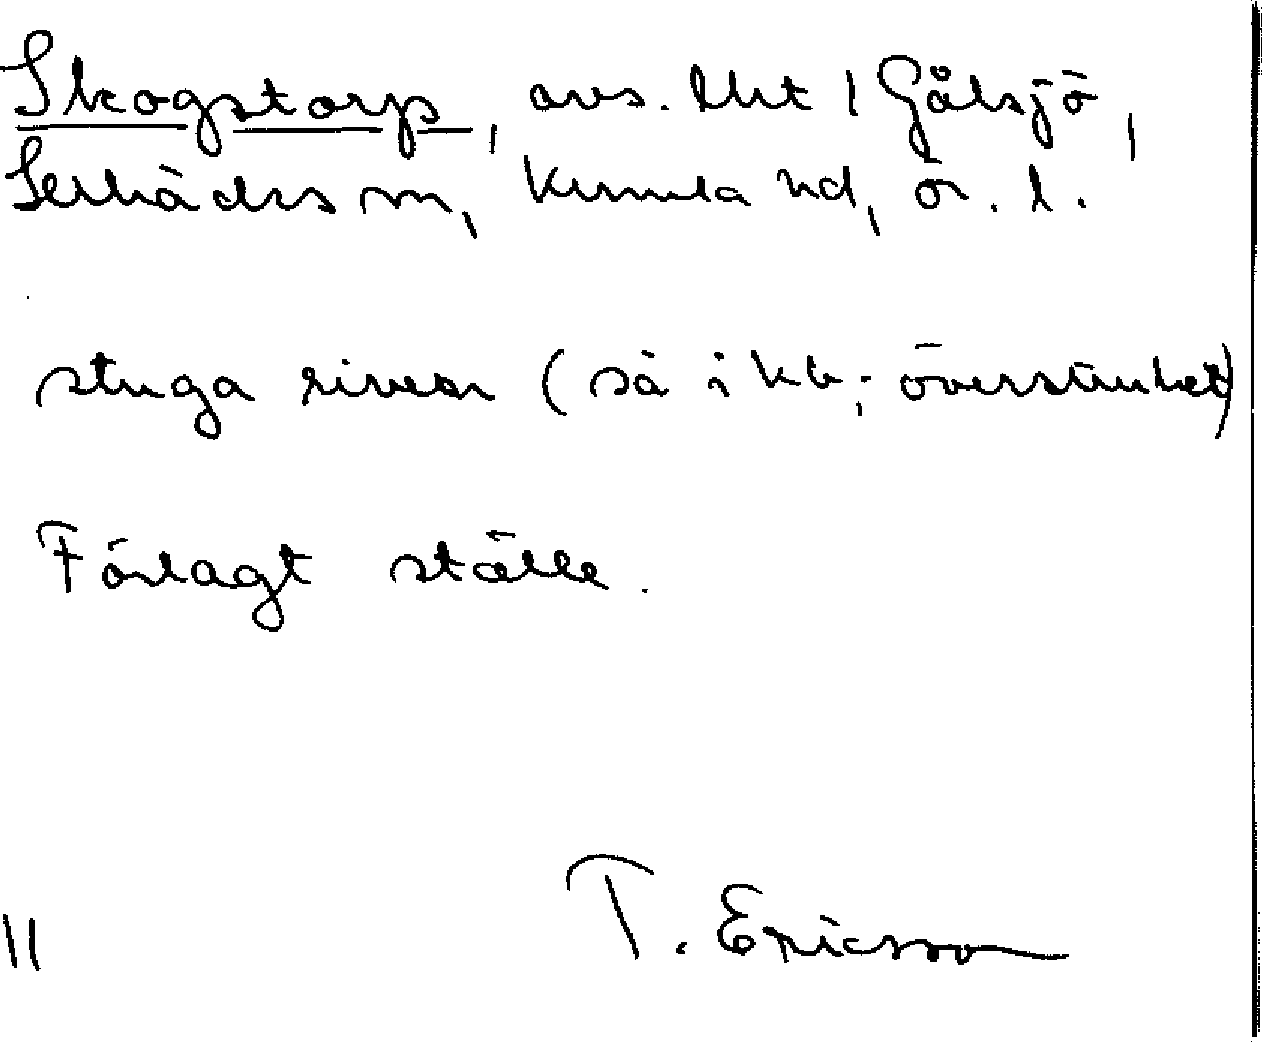 Skogstorp, avs. lht i Gålsjö,
Sekädrs sn, Kumla hd, Ör. l.
stuga riven (så i kb; överstruket)
Förlagt ställe.
11 T. Ericsson